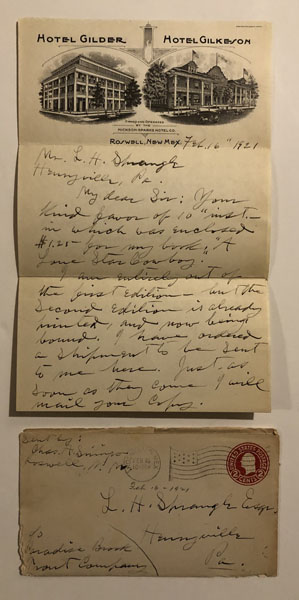 HOTEL GILDER HOTEL GILKESON
ROSWELL, NEW MEX. Feb. 16" 1921
Mr. L. H. Sprangle
Henryville, Pa.
My dear Sir: Your
kind favor of 10" inst.—
in which was enclosed
$1.25 for my book, "A
Lone Star Cowboy,"
I am entirely out of
the first Edition— but the
Second Edition is already
printed, and now being
bound. I have ordered
a shipment to be sent
to me here. Just as
soon as they come I will
mail your Copy.
Sent by:
Chas. A. Siringo
Roswell, N. M.
Feb. 16-1921
L. H. Sprangle Esqr.
Henryville
Pa.
Paradise Brook
Trout Company